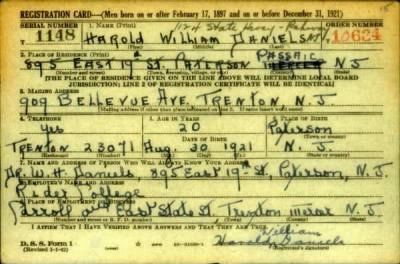 REGISTRATION CARD—(Men born on or after February 17, 1897 and on or before December 31, 1921)
SERIAL NUMBER 1. NAME (Print) ORDER NUMBER
1148 HAROLD WILLIAM DANIELS 10624
(First) (Middle) (Last)
2. PLACE OF RESIDENCE (Print) PASSAIC
895 EAST 19 ST. PATERSON MERCER N J
(Number and street) (Town, township, village, or city) (County) (State)
[THE PLACE OF RESIDENCE GIVEN ON THE LINE ABOVE WILL DETERMINE LOCAL BOARD
JURISDICTION; LINE 2 OF REGISTRATION CERTIFICATE WILL BE IDENTICAL]
3. MAILING ADDRESS
909 BELLEVUE AVE. TRENTON N. J.
4. TELEPHONE 5. AGE IN YEARS 6. PLACE OF BIRTH
Yes 20 Paterson
DATE OF BIRTH (Town or county)
TRENTON 23071 Aug. 30 1921 N. J.
7. NAME AND ADDRESS OF PERSON WHO WILL ALWAYS KNOW YOUR ADDRESS
Dr. W. H. Daniels, 895 East 19th St, Paterson, N. J.
8. EMPLOYER'S NAME AND ADDRESS
Rider College
9. PLACE OF EMPLOYMENT OR BUSINESS
Carroll and East State St, Trenton Mercer N. J.
(Number and street or R. F. D. number) (Town) (County) (State)
I AFFIRM THAT I HAVE VERIFIED ABOVE ANSWERS AND THAT THEY ARE TRUE.
D. S. S. Form 1 William
(Revised 3-1-42) Harold Daniels
(Registrant's signature)